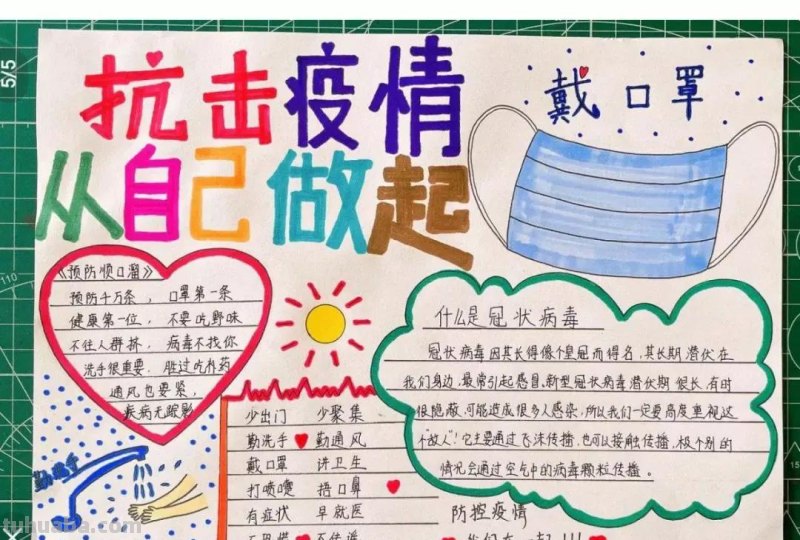 5/5
抗击疫情
从自己做起
戴口罩
《预防顺口溜》
预防千万条，口罩第一条
健康第一位，不要吃野味
不往人群挤，病毒不找你
洗手很重要，胜过吃补药
通风也要紧，
疾病无踪影
勤洗手
少出门 少聚集
勤洗手 勤通风
戴口罩 讲卫生
打喷嚏 捂口鼻
有症状 早就医
什么是冠状病毒
冠状病毒因其长得像个皇冠而得名，其长期潜伏在
我们身边，最常引起感冒。新型冠状病毒潜伏期很长，有时
很隐蔽，可能造成很多人感染，所以我们一定要高度重视这
"敌人"！它主要通过飞沫传播，也可以接触传播，极个别的
情况会通过空气中的病毒颗粒传播。
防控疫情
110
tuhuaba.com